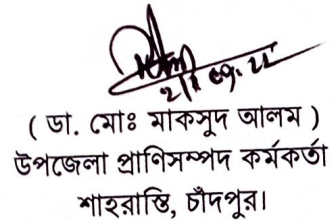 ( ডা. মোঃ মাকসুদ আলম )
উপজেলা প্রাণিসম্পদ কর্মকর্তা
শাহরাস্তি, চাঁদপুর।